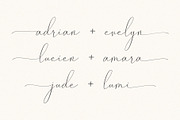 adrian + evelyn
lucien + amara
jude + lumi